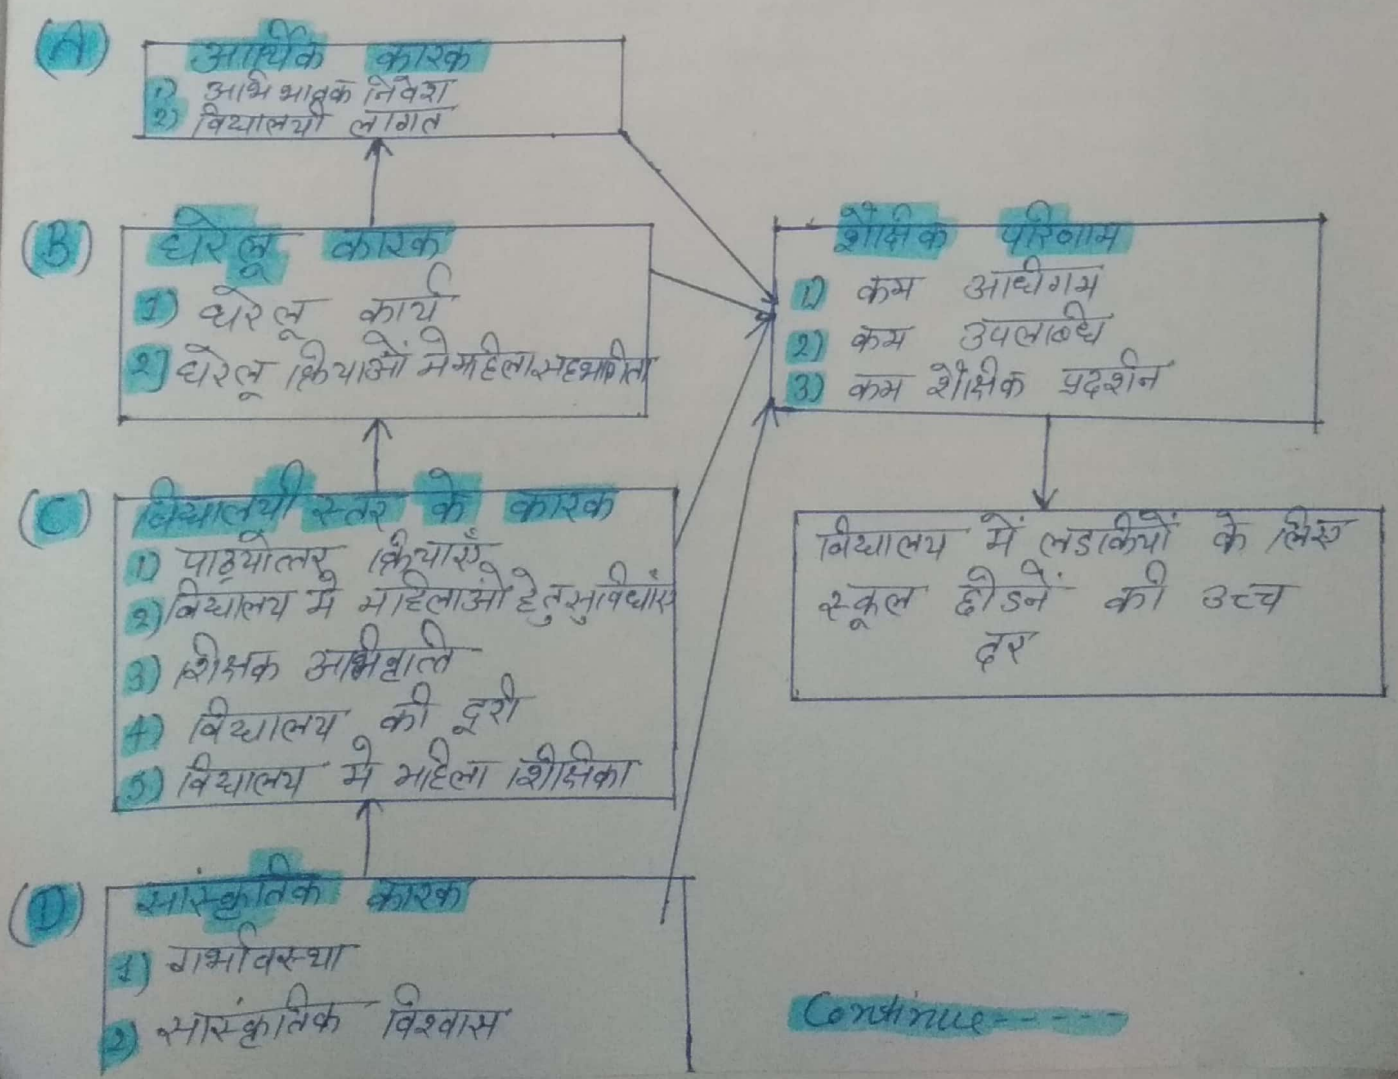 (A) आर्थिक कारक
1) अभिभावक निवेश
2) विद्यालयी लागत
(B) घरेलू कारक
1) घरेलू कार्य
2) घरेलू क्रियाओं मे महिला सहभागिता
(C) विद्यालयी स्तर के कारक
1) पाठ्योत्तर क्रियाएँ
2) विद्यालय मे महिलाओं हेतु सुविधाएं
3) शिक्षक अभिवृत्ति
4) विद्यालय की दूरी
5) विद्यालय मे महिला शिक्षिका
(D) सांस्कृतिक कारक
1) गर्भावस्था
2) सांस्कृतिक विश्वास
शैक्षिक परिणाम
1) कम अधिगम
2) कम उपलब्धि
3) कम शैक्षिक प्रदर्शन
विद्यालय में लडकियों के लिए
स्कूल छोडनें की उच्च
दर
Continue-----